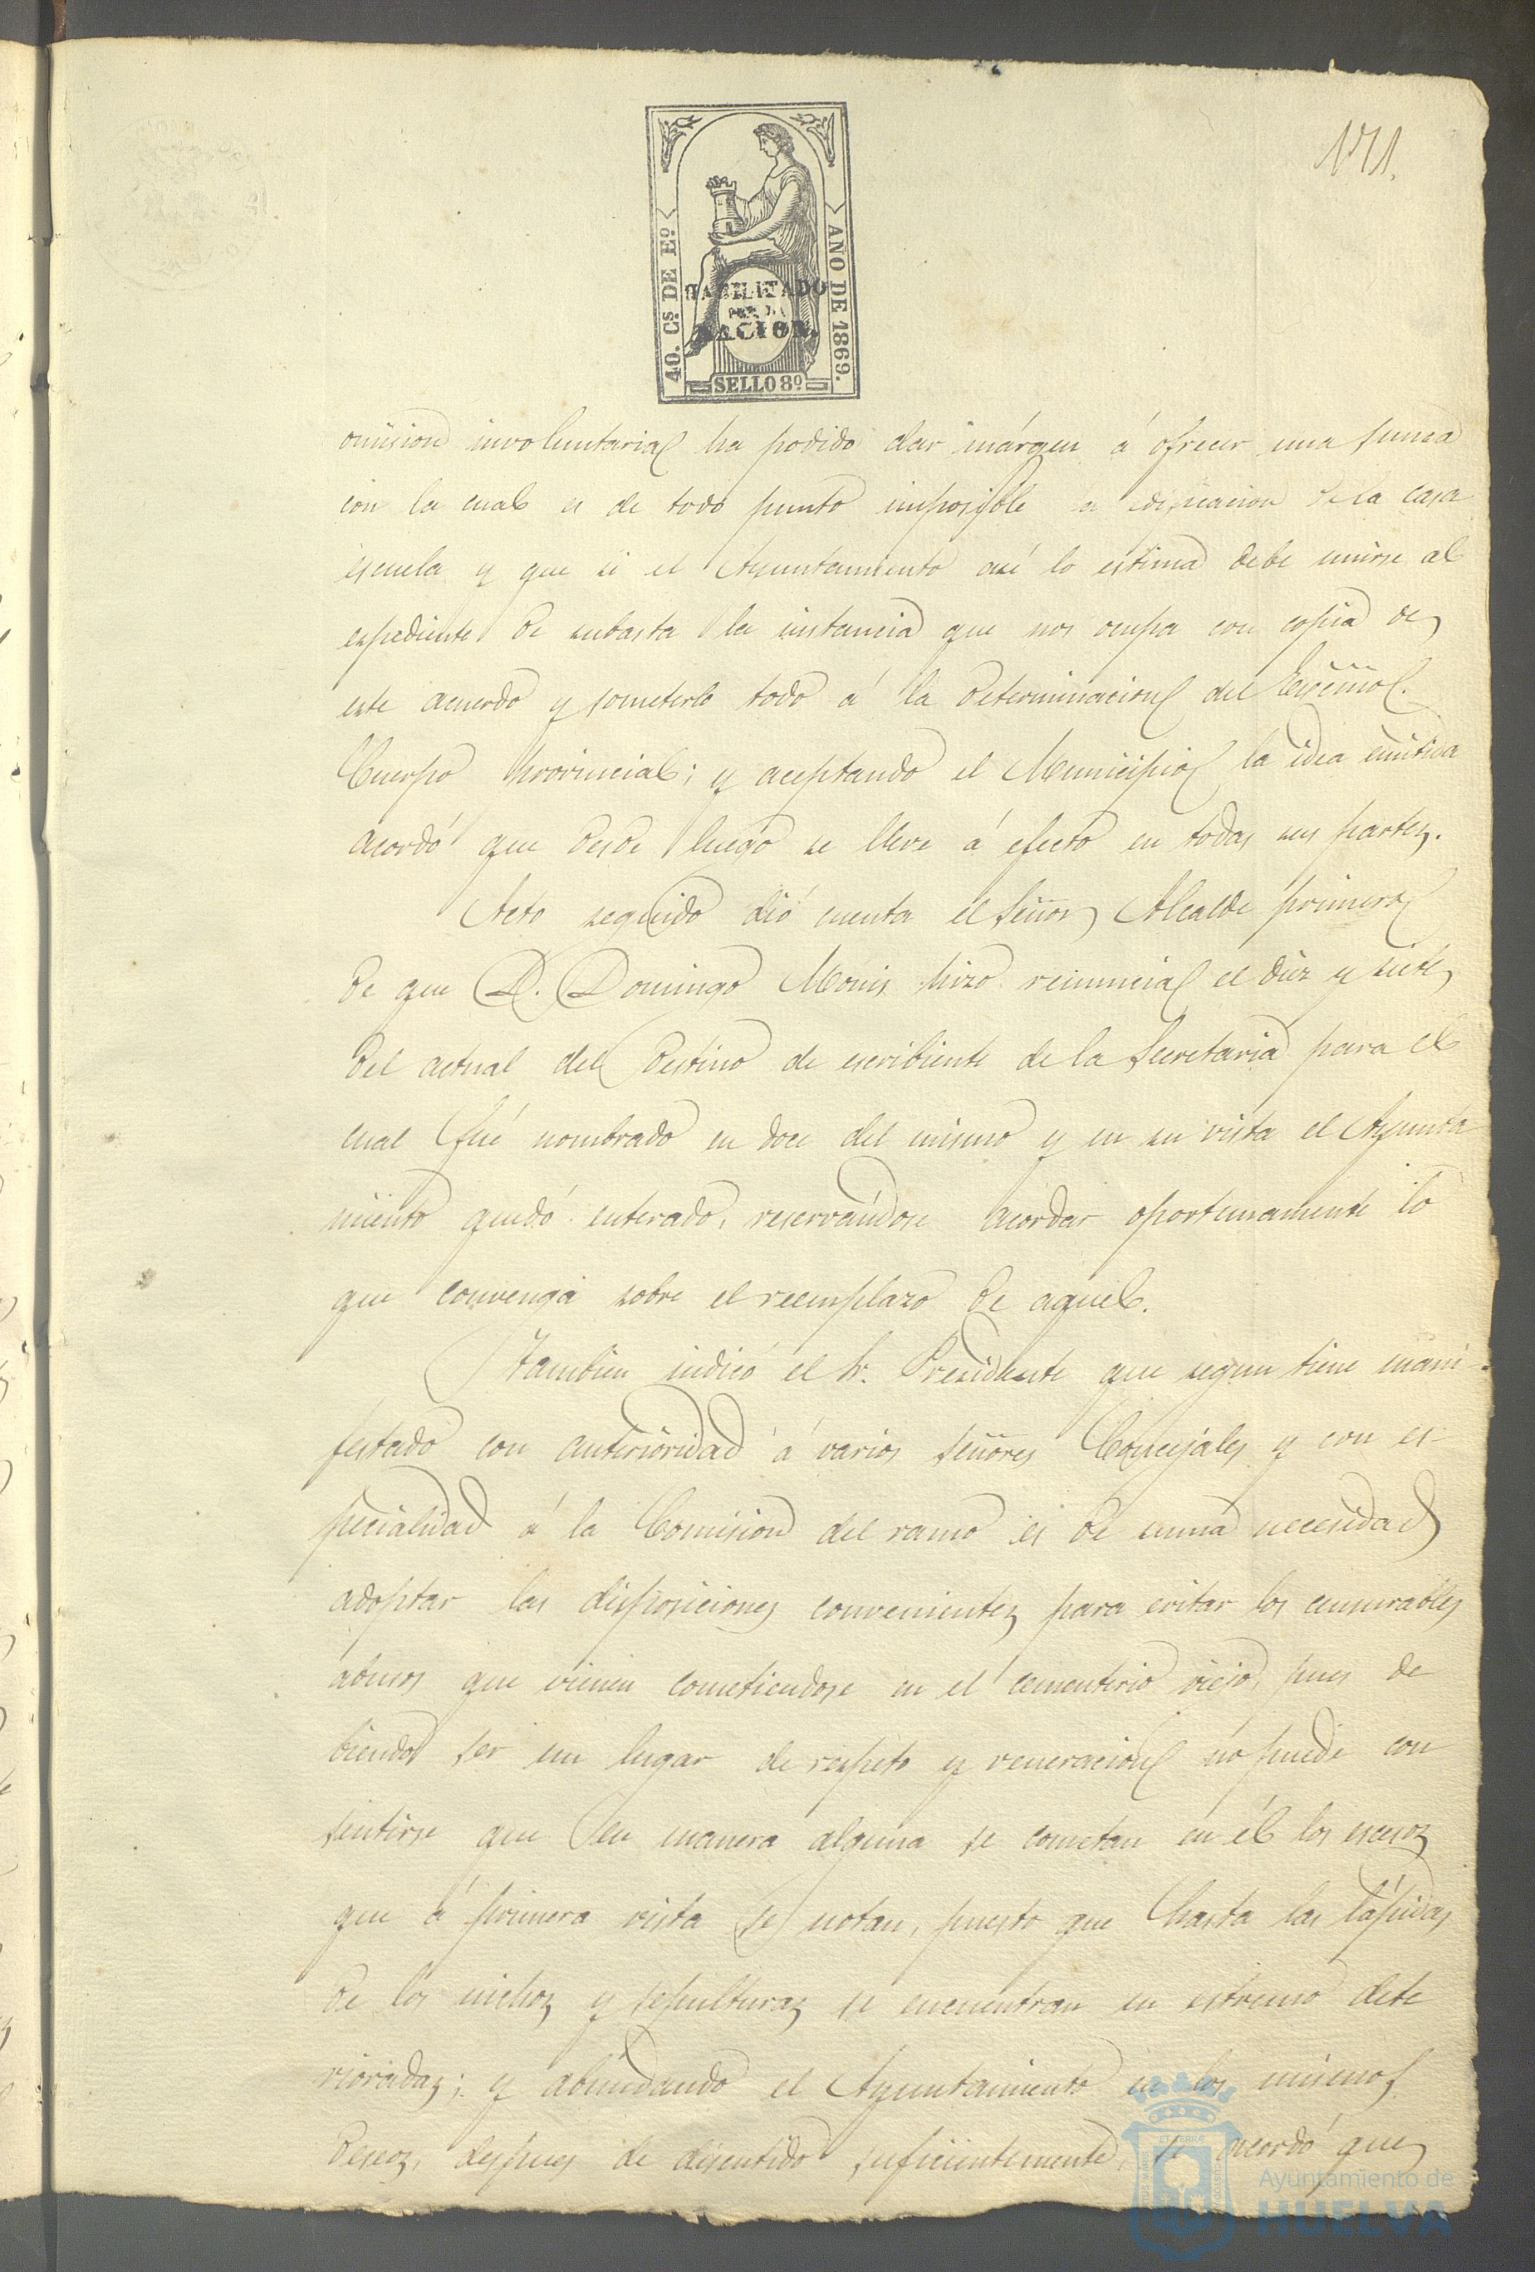 171.
40. Cs DE Eº
AÑO DE 1869.
HABILITADO
POR LA
NACION.
SELLO 8º
omision involuntaria ha podido dar márgen á ofrecer una suma
con la cual es de todo punto imposible la edificacion de la casa
escuela y que si el Ayuntamiento asi lo estima debe unirse al
espediente de subasta la instancia que nos ocupa con copia de
este acuerdo y someterlo todo á la determinacion del Escmo.
Cuerpo provincial; y aceptando el Municipio la idea emitida
acordó que desde luego se lleve á efecto en todas sus partes.
Acto seguido dió cuenta el Señor Alcalde primero
de que D. Domingo Monis hizo renuncia el diez y siete
del actual del destino de escribiente de la Secretaria para el
cual fué nombrado en doce del mismo y en su vista el Ayunta
miento quedó enterado, reservándose acordar oportunamente lo
que convenga sobre el reemplazo de aquel.
Tambien indicó el Sr. Presidente que segun tiene mani-
festado con anterioridad á varios Señores Concejales y con es-
pecialidad á la Comision del ramo es de suma necesidad
adoptar las disposiciones convenientes para evitar los censurables
abusos que vienen cometiendose en el cementerio viejo, pues de
biendo ser un lugar de respeto y veneracion no puede con
sentirse que en manera alguna se cometan en él los escesos
que á primera vista se notan, puesto que hasta las lápidas
de los nichos y sepulturas se encuentran en estremo dete
rioradas; y abundando el Ayuntamiento en los mismos
deseos, despues de discutido suficientemente, se acordó que
Ayuntamiento de
HUELVA